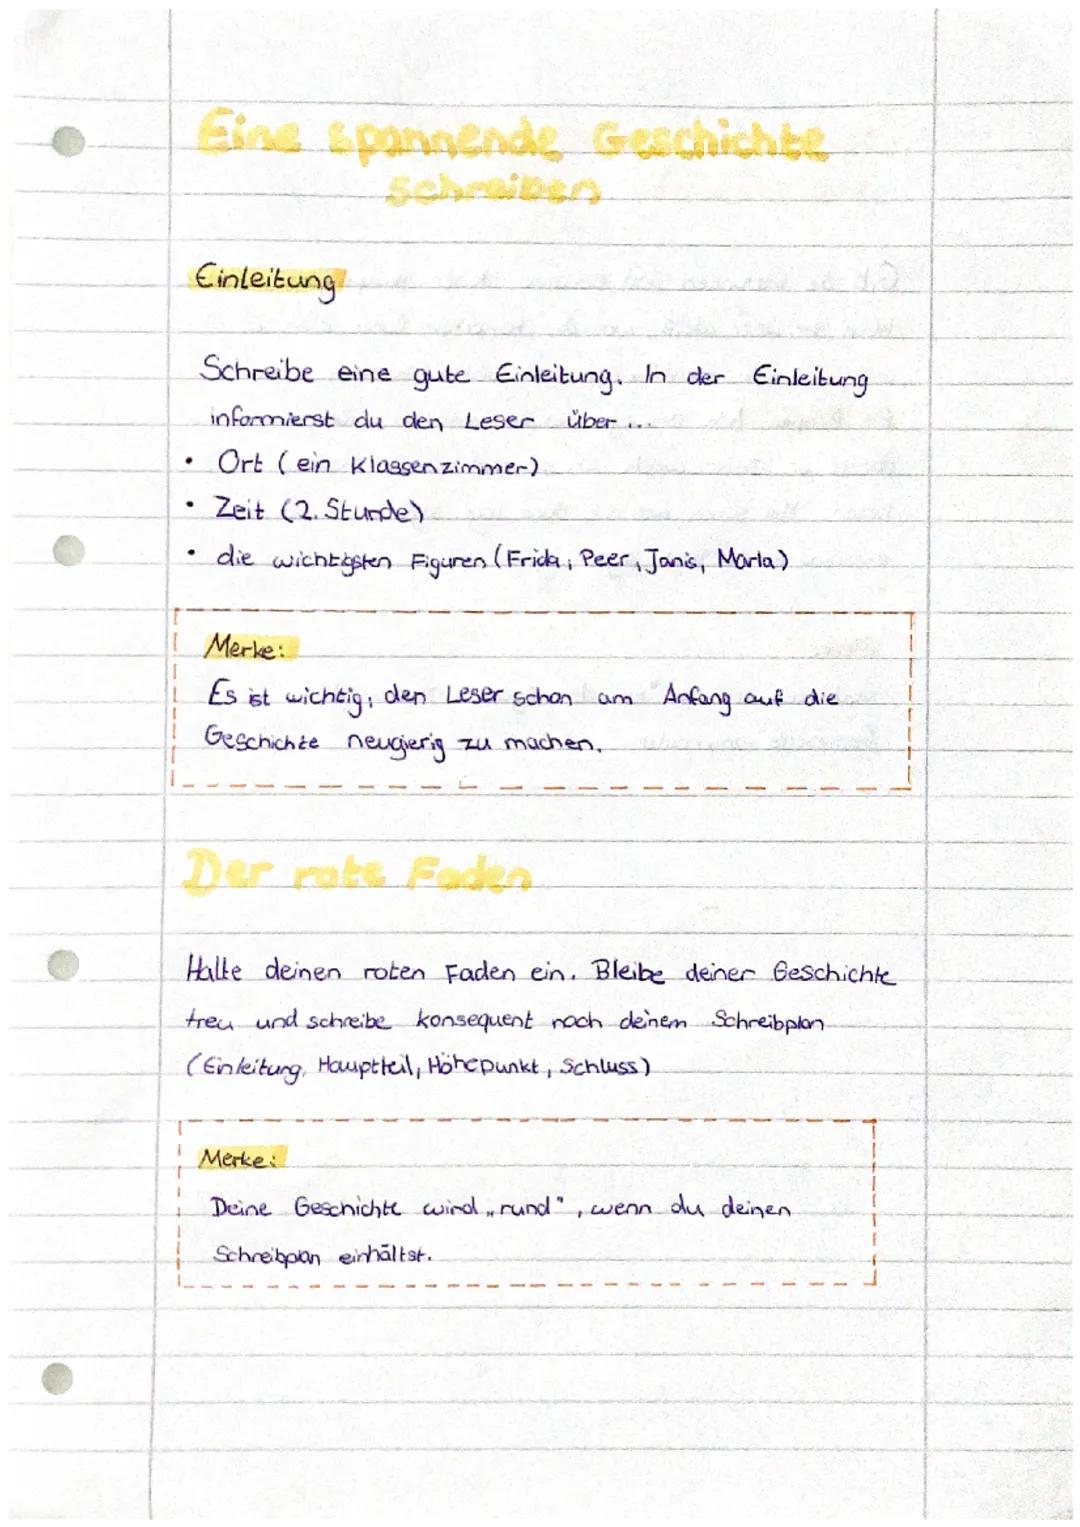 Eine spannende Geschichte
schreiben
Einleitung
Schreibe eine gute Einleitung. In der Einleitung
informierst du den Leser über ...
• Ort (ein Klassenzimmer)
• Zeit (2. Stunde)
• die wichtigsten Figuren (Frida, Peer, Janis, Marla)
Merke:
Es ist wichtig, den Leser schon am Anfang auf die
Geschichte neugierig zu machen.
Der rote Faden
Halte deinen roten Faden ein. Bleibe deiner Geschichte
treu und schreibe konsequent nach deinem Schreibplan
(Einleitung, Hauptteil, Höhepunkt, Schluss)
Merke:
Deine Geschichte wird „rund", wenn du deinen
Schreibplan einhältst.